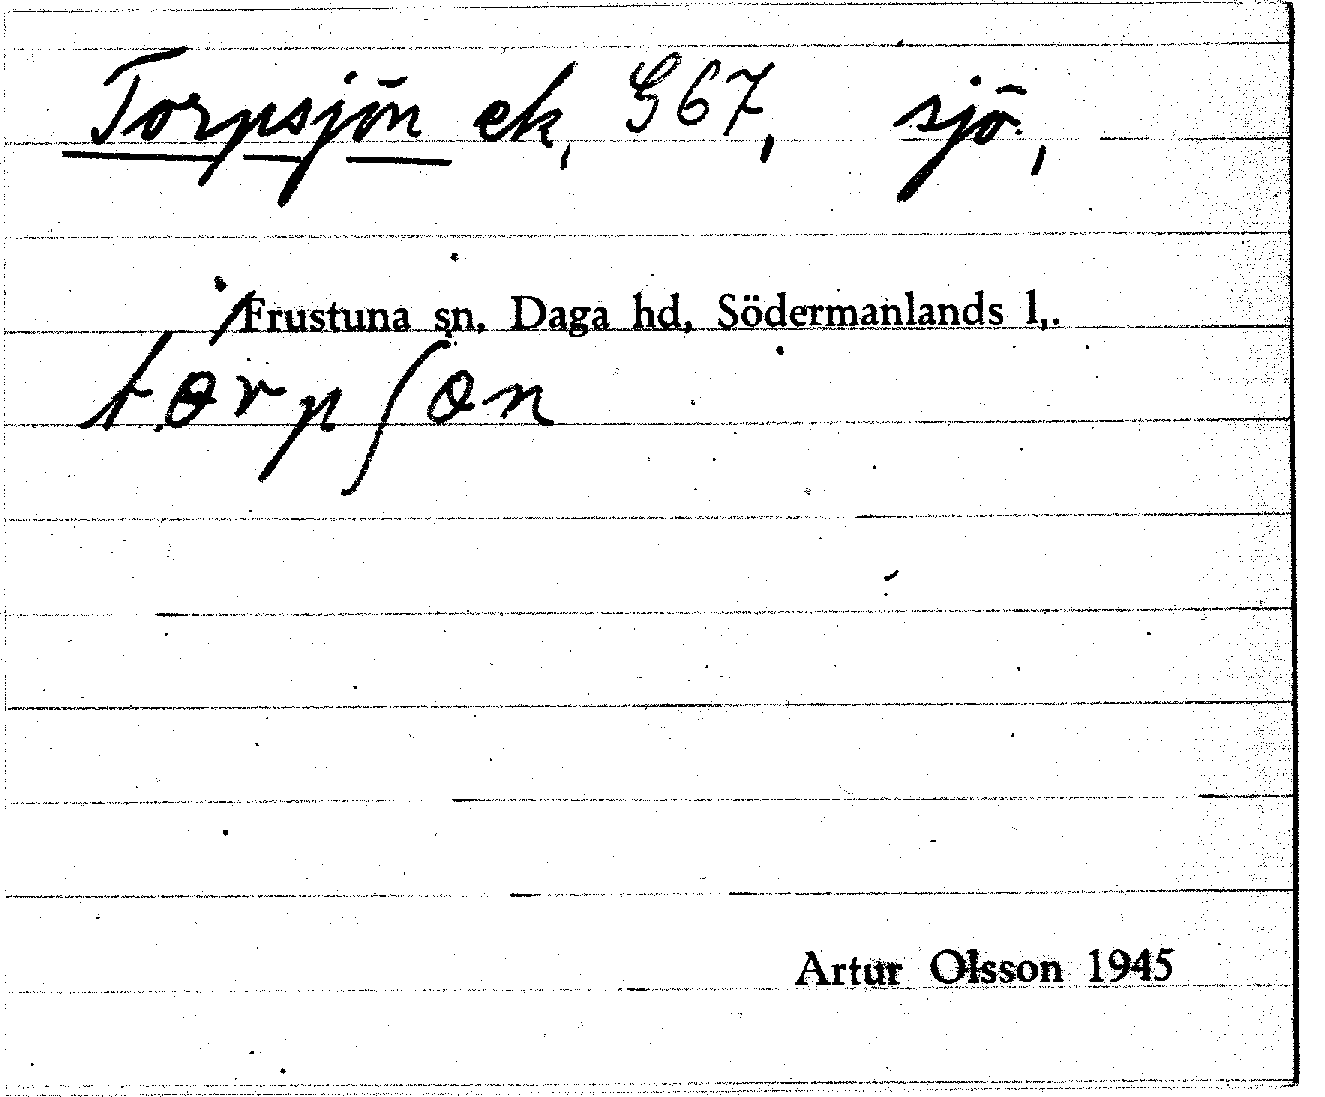 Torpsjön ek, G67, sjö,
i Frustuna sn, Daga hd, Södermanlands l,.
tɵrpʃɵn
Artur Olsson 1945